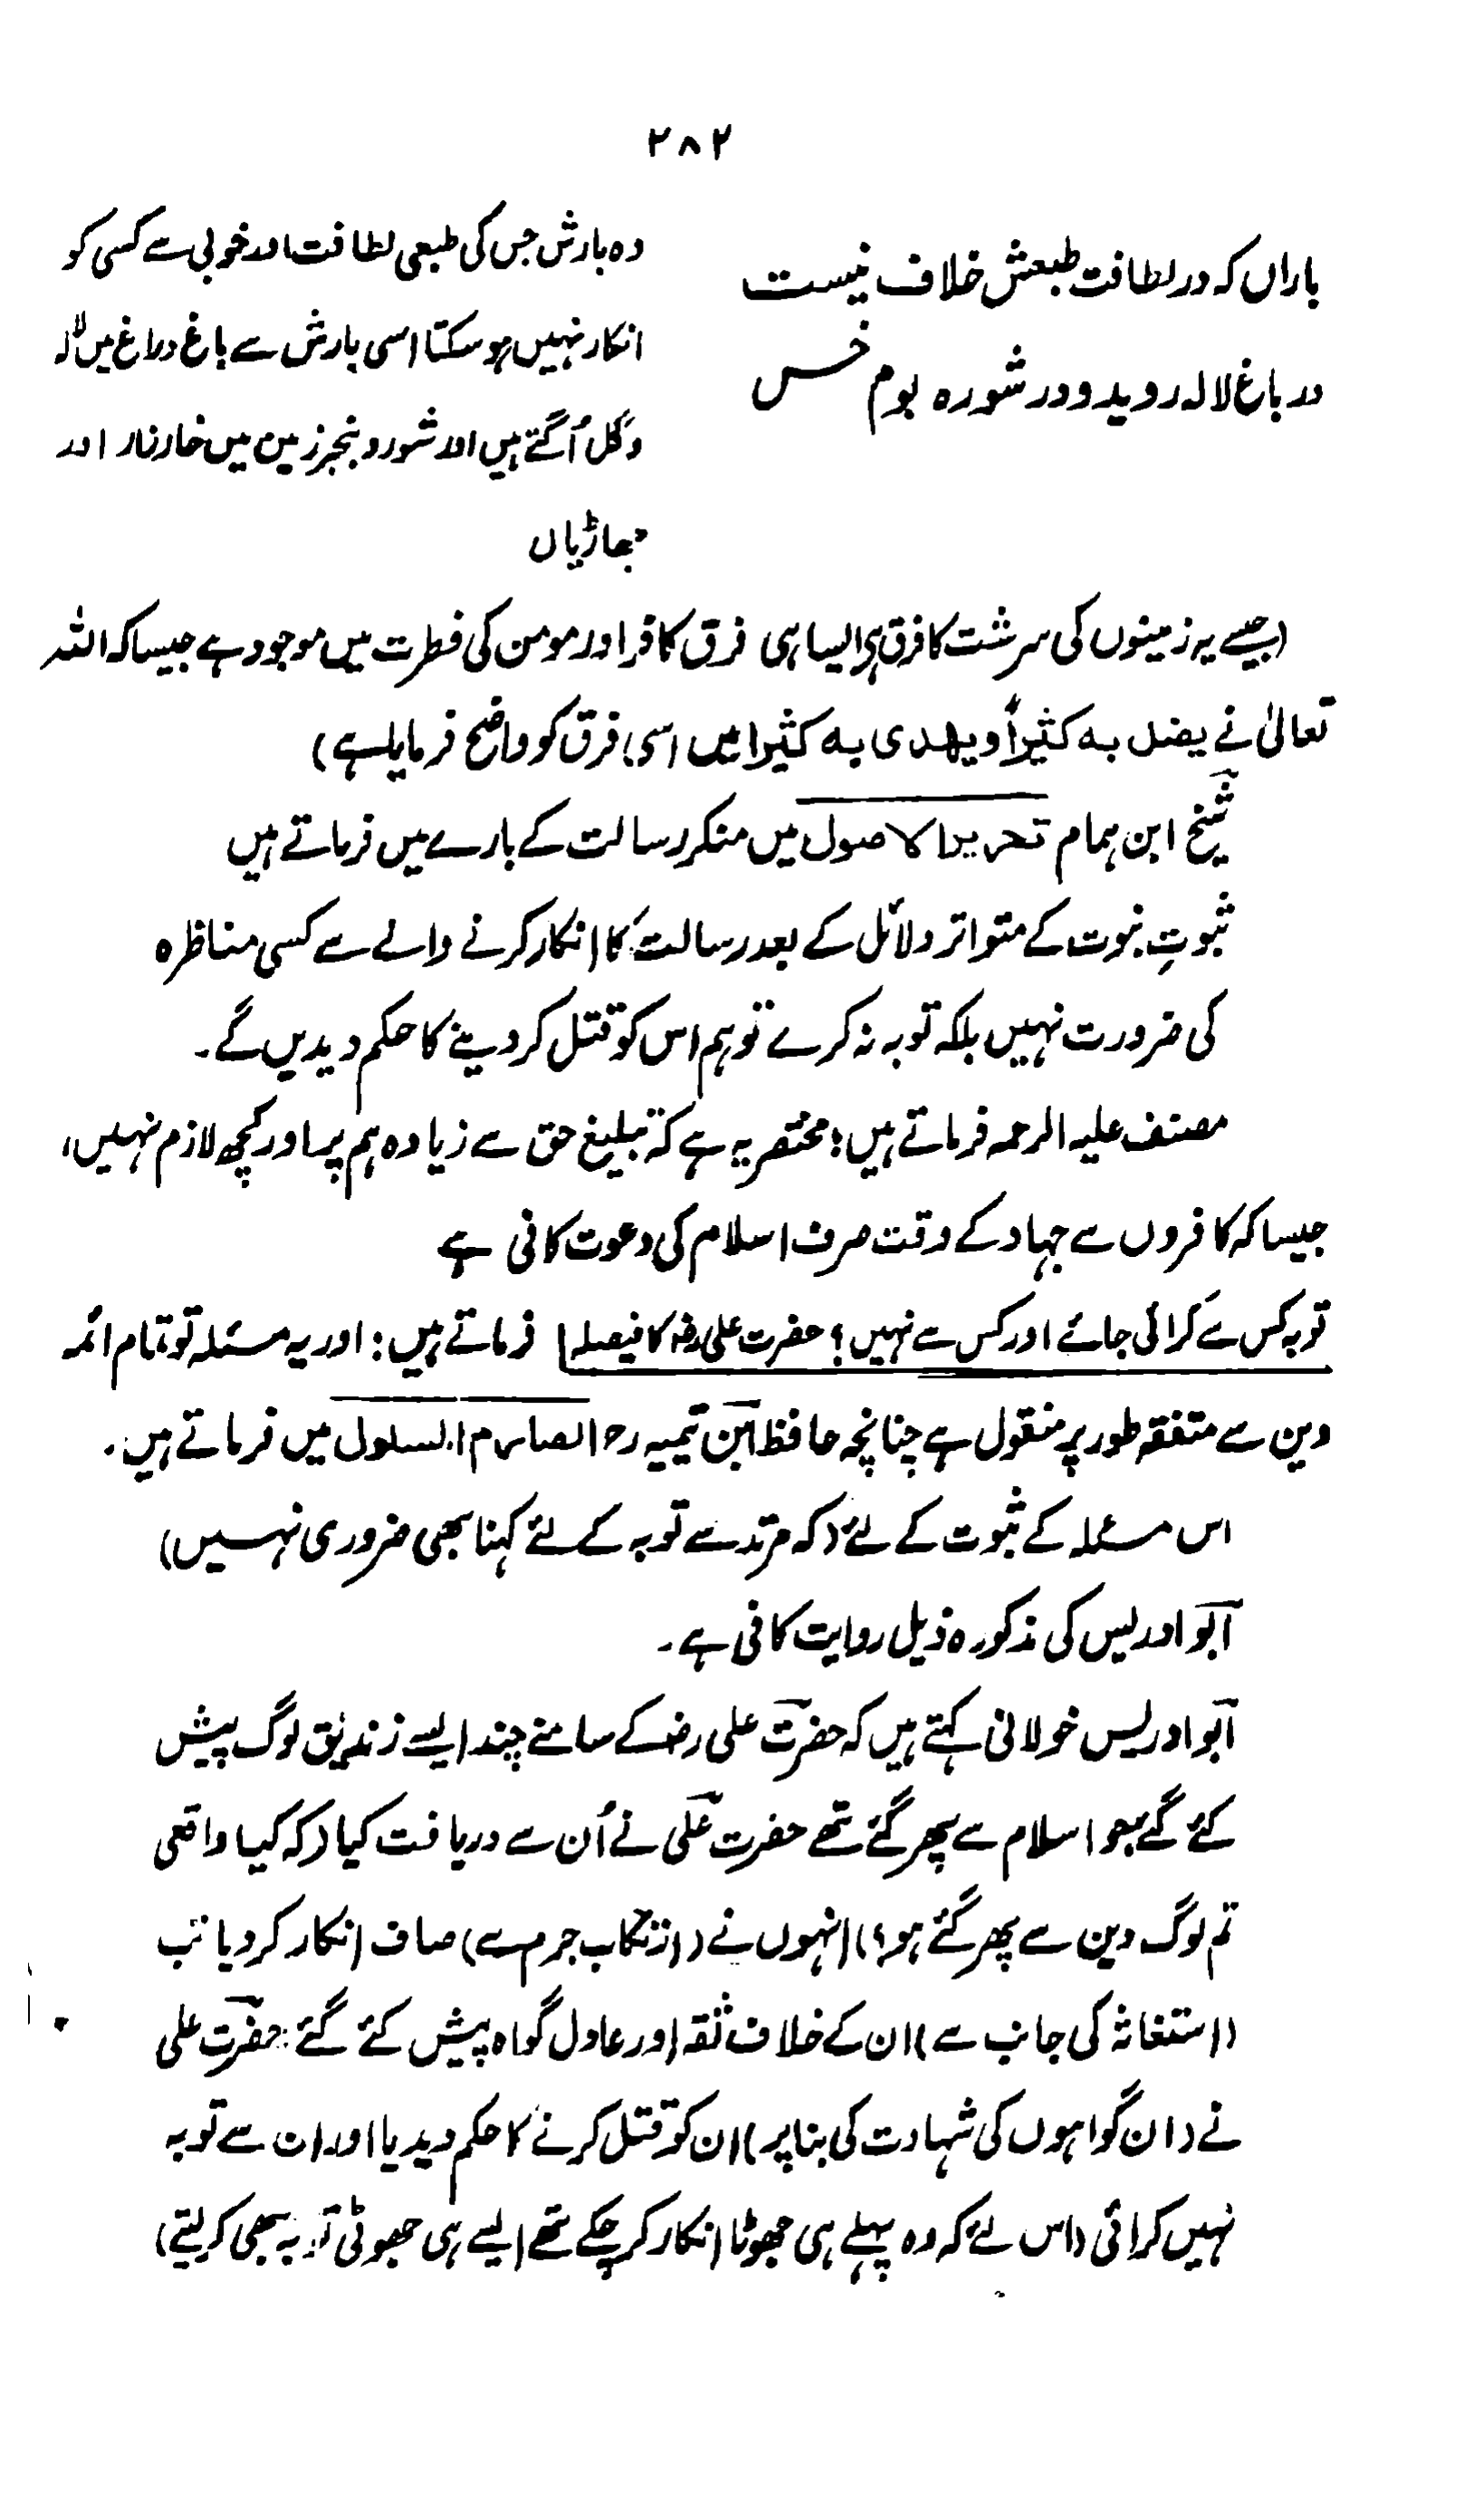 ۲۸۲
باراں کہ در لطافت طبعش خلاف نیست
در باغ لالہ روید و در شورہ بوم خس
وہ بارش جس کی طبعی لطافت اور خوبی سے کسی کو
انکار نہیں ہو سکتا اسی بارش سے باغ و راغ میں لالہ
و گل اُگتے ہیں اور شور و بنجر زمین میں خارزار اور
جھاڑیاں
(جیسے یہ زمینوں کی سرشت کا فرق ہے ایسا ہی فرق کافر اور مومن کی فطرت میں موجود ہے جیسا کہ اللہ
تعالیٰ نے یضل بہ کثیراً ویھدی بہ کثیرا میں اسی فرق کو واضح فرمایا ہے)
شیخ ابن ہمام تحریر الاصول میں منکر رسالت کے بارے میں فرماتے ہیں
ثبوتِ نبوت کے متواتر دلائل کے بعد رسالت کا انکار کرنے والے سے کسی مناظرہ
کی ضرورت نہیں بلکہ توبہ نہ کرے تو ہم اس کو قتل کر دینے کا حکم دیدیں گے۔
مصنف علیہ الرحمہ فرماتے ہیں: مختصر یہ ہے کہ تبلیغ حق سے زیادہ ہم پر اور کچھ لازم نہیں،
جیسا کہ کافروں سے جہاد کے وقت صرف اسلام کی دعوت کافی ہے
توبہ کس سے کرائی جائے اور کس سے نہیں؟ حضرت علی رضہ کا فیصلہ فرماتے ہیں: اور یہ مسئلہ تو تمام ائمہ
دین سے متفقہ طور پر منقول ہے چنانچہ حافظ ابن تیمیہ رح الصارم المسلول میں فرماتے ہیں۔
اس مسئلہ کے ثبوت کے لئے (کہ مرتد سے توبہ کے لئے کہنا بھی ضروری نہیں)
ابو ادریس کی مذکورہ ذیل روایت کافی ہے۔
ابو ادریس خولانی کہتے ہیں کہ حضرت علی رضہ کے سامنے چند ایسے زندیق لوگ پیش
کئے گئے جو اسلام سے پھر گئے تھے حضرت علی نے اُن سے دریافت کیا (کہ کیا واقعی
تم لوگ دین سے پھر گئے ہو؟) انہوں نے (ارتکاب جرم سے) صاف انکار کر دیا تب
(استغاثہ کی جانب سے) ان کے خلاف ثقہ اور عادل گواہ پیش کئے گئے: حضرت علی
نے (ان گواہوں کی شہادت کی بنا پر) ان کو قتل کرنے کا حکم دیدیا اور ان سے توبہ
نہیں کرائی (اس لئے کہ وہ پہلے ہی جھوٹا انکار کر چکے تھے ایسے ہی جھوٹی توبہ بھی کر لیتے)